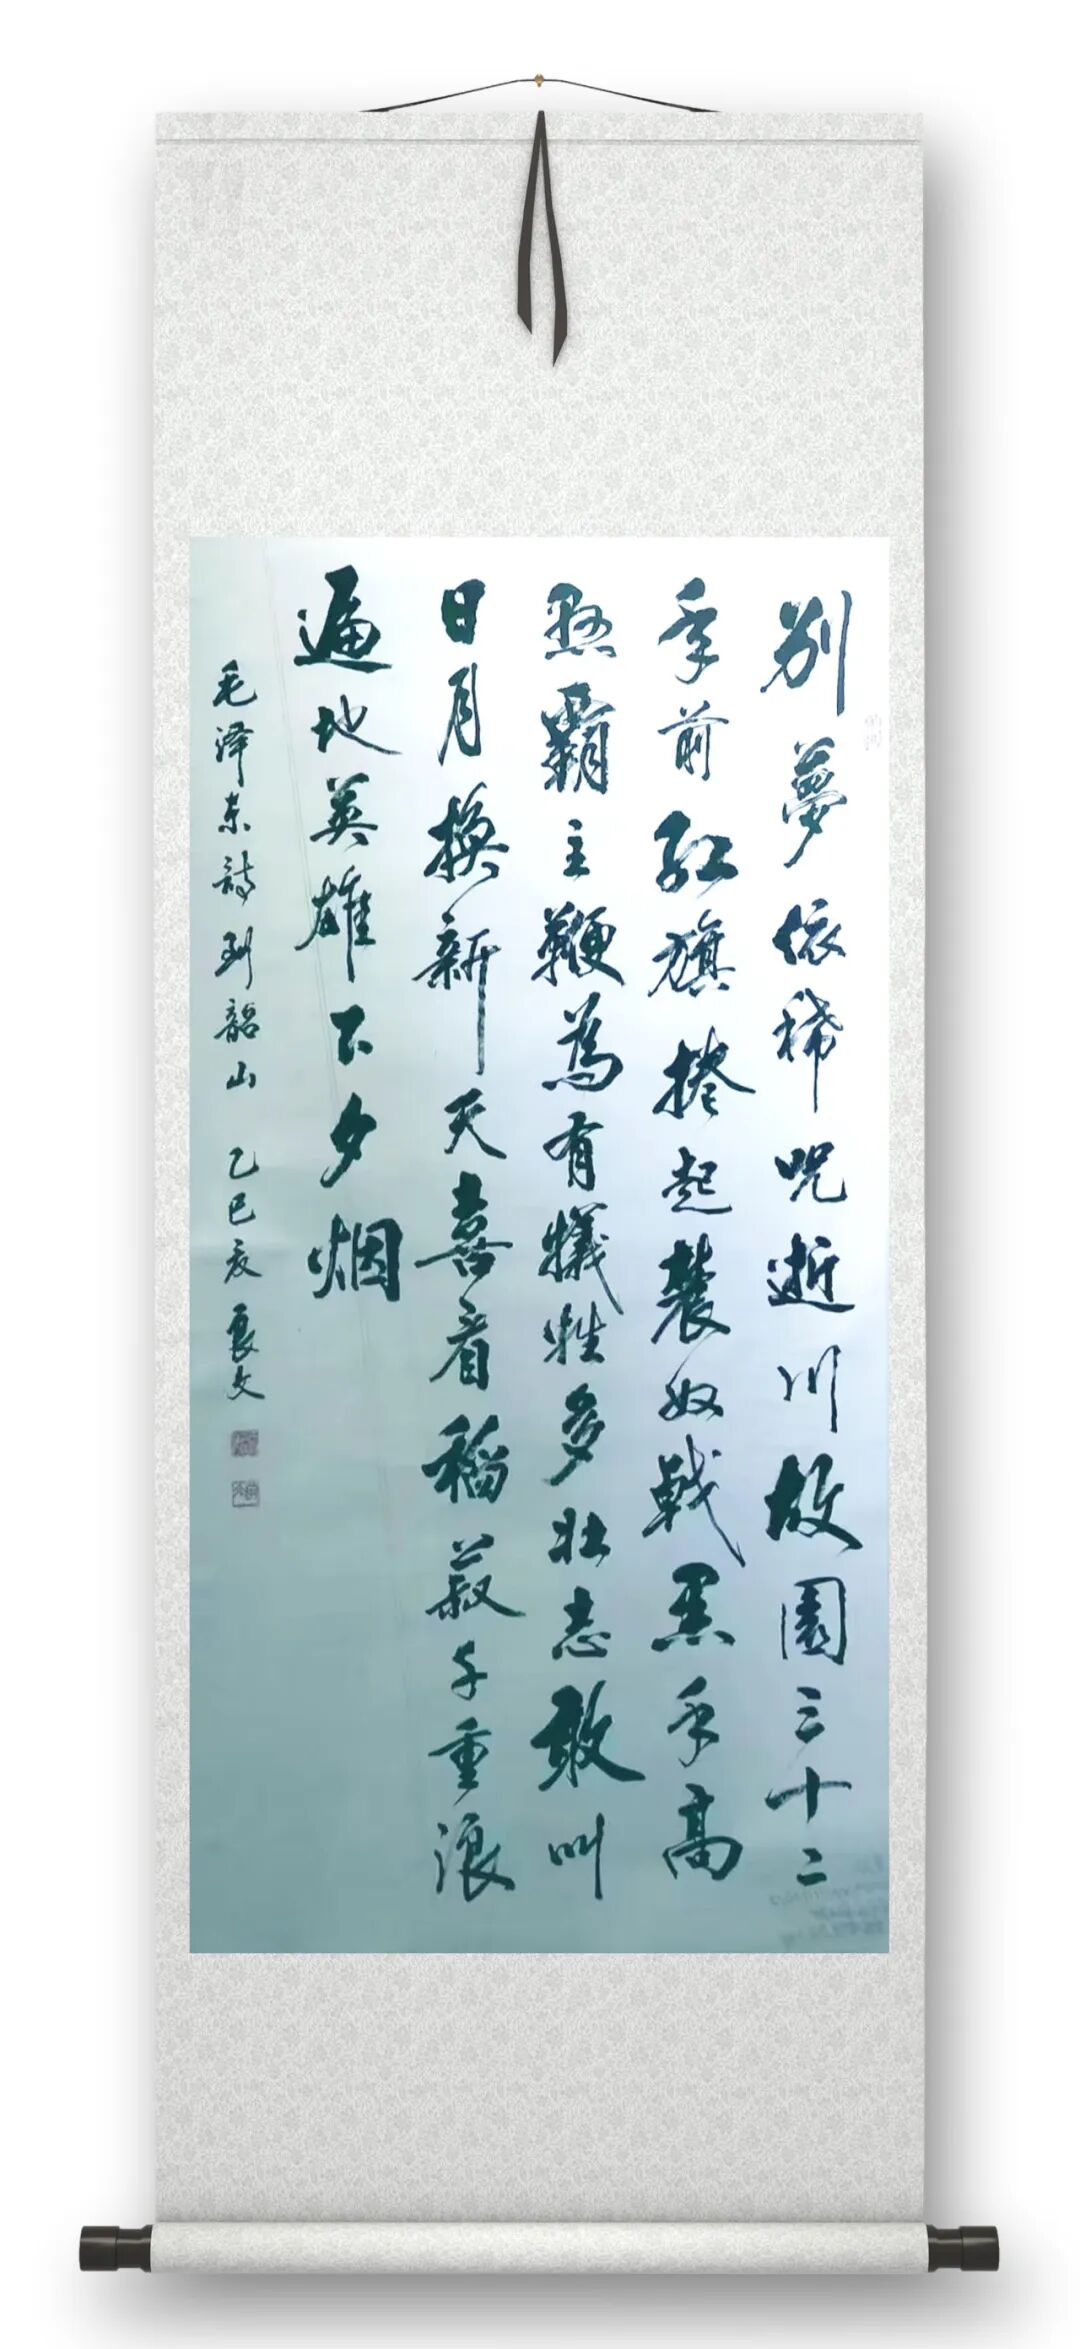 别夢依稀咒逝川故園三十二
年前红旗捲起農奴戟黑手高
悬霸主鞭為有犧牲多壮志敢叫
日月换新天喜看稻菽千重浪
遍地英雄下夕烟
毛泽东詩到韶山 乙巳 文